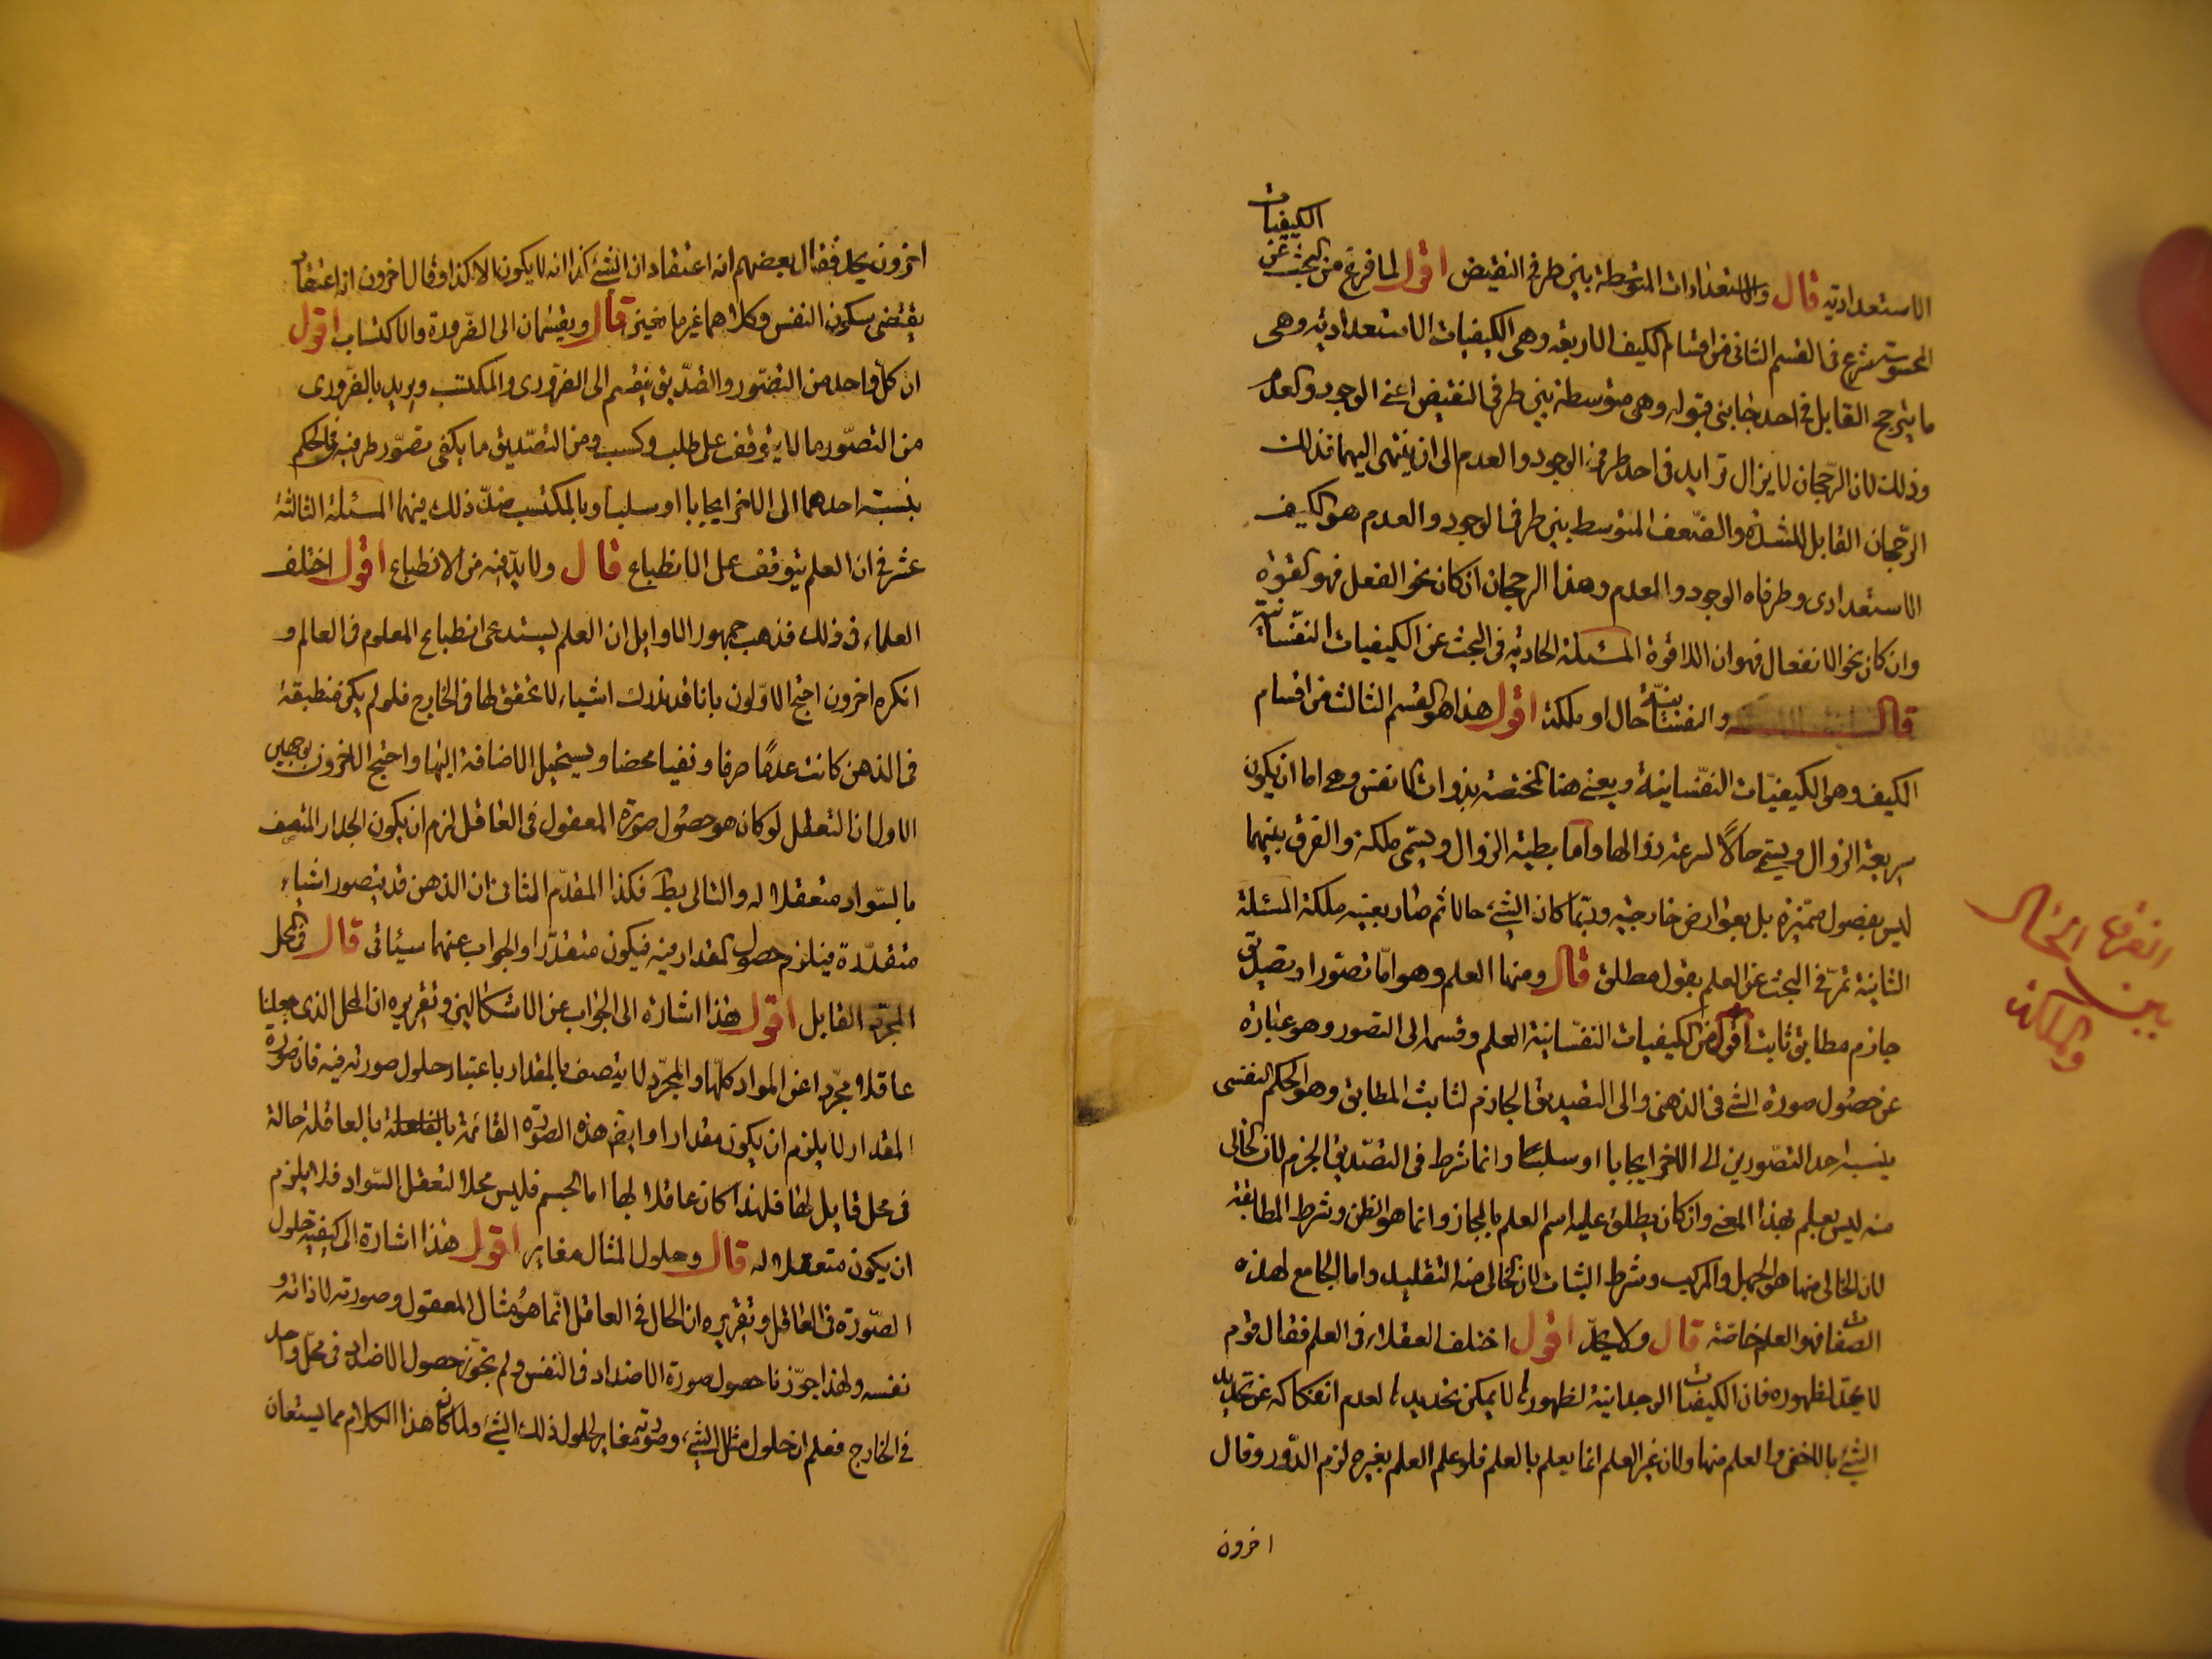 الكيفيات
الاستعدادية قال والاستعدادات المتوسطة بين طرفي النقيض اقول لما فرغ من البحث عن
المحسوسة شرع في القسم الثاني من اقسام الكيف الاربعة وهي الكيفيات الاستعدادية وهي
ما يترجح القابل في احد جانبي قبوله وهي متوسطة بين طرفي النقيض اعني الوجود والعدم
وذلك لان الرجحان لا يزال تزايد في احد طرفي الوجود والعدم الى ان ينتهي اليهما فذلك
الرجحان القابل للشدة والضعف المتوسط بين طرفي الوجود والعدم هو الكيف
الاستعدادي وطرفاه الوجود والعدم وهذا الرجحان ان كان نحو الفعل فهو القوة
وان كان نحو الانفعال فهو ان اللاقوة المسئلة الحادية في البحث عن الكيفيات النفسانية
قال والنفسانية حال او ملكة اقول هذا هو القسم الثالث من اقسام
الكيف وهو الكيفيات النفسانية ويعني هنا المختصة بذوات الانفس وهي اما ان يكون
سريعة الزوال ويسمى حالا لسرعة زوالها واما بطية الزوال ويسمى ملكة والفرق بينهما
ليس بفصول مميزة بل بعوارض خارجية وربما كان الشئ حالا ثم صار بعينه ملكة المسئلة
الثانية عشر في البحث عن العلم بقول مطلق قال ومنها العلم وهو اما تصور او تصديق
جازم مطابق ثابت اقول من الكيفيات النفسانية العلم وقسمه الى التصور وهو عبارة
عن حصول صورة الشئ في الذهن والى التصديق الجازم الثابت المطابق وهو الحكم النفسي
بنسبة احد التصورين الى الاخر ايجابا او سلبا وانما شرط في التصديق الجزم لان الخالي
منه ليس بعلم بهذا المعنى وان كان يطلق عليه اسم العلم بالمجاز وانما هو الظن وشرط المطابقة
لان الخالي منها هو الجهل والمركب وشرط الثبات لان الخالي منه التقليد واما الجامع لهذه
الصفات فهو العلم خاصة قال ولا يحد اقول اختلف العقلاء في العلم فقال قوم
لا يحد لظهوره فان الكيفيات الوجدانية لظهورها لا يمكن تحديدها لعدم انفكاكه عن تحديد
الشئ بالاخفى والعلم منها ولان غير العلم انما يعلم بالعلم فلو علم العلم بغيره لزم الدور وقال
اخرون
الفرق
بين الحال
والملكة
اخرون يحد فقال بعضهم انه اعتقاد ان الشئ كذا انه لا يكون الا كذا وقال اخرون انه اعتقاد
يقتضي سكون النفس وكلاهما غير مانعين قال ويقتسمان الى الضرورة والاكتساب اقول
ان كل واحد من التصور والتصديق ينقسم الى الضروري والمكتسب ويريد بالضروري
من التصور ما لا يتوقف على طلب وكسب ومن التصديق ما يكفي تصور طرفيه في الحكم
بنسبة احدهما الى الاخر ايجابا او سلبا وبالمكتسب ضد ذلك فيهما المسئلة الثالثة
عشر في ان العلم يتوقف على الانطباع قال ولا بد فيه من الانطباع اقول اختلف
العلماء في ذلك فذهب جمهور الاوايل ان العلم يستدعي انطباع المعلوم في العالم و
انكره اخرون احتج الاولون بانا قد ندرك اشياء لا تحقق لها في الخارج فلو لم يكن منطبقة
في الذهن كانت عدما صرفا ونفيا محضا ويستحيل الاضافة اليها واحتج الاخرون بوجهين
الاول ان التعقل لو كان هو حصول صورة المعقول في العاقل لزم ان يكون الجدار المتصف
بالسواد متعقلا له والتالي بط فكذا المقدم الثاني ان الذهن قد يتصور اشياء
متقدرة فيلزم حصول المقدار فيه فيكون متقدرا والجواب عنهما سيأتي قال في المحل
المجرد القابل اقول هذا اشارة الى الجواب عن الاشكالين وتقريره ان المحل الذي جعلنا
عاقلا مجردا عن المواد كلها والمجرد لا يتصف بالمقدار باعتبار حلول صورته فيه فان صورة
المقدار لا يلزم ان يكون مقدارا وايض هذه الصورة القائمة بالعاقلة حالة
في محل قابل لها فلهذا كان عاقلا لها اما الجسم فليس محلا لتعقل السواد فلا يلزم
ان يكون متعقلا له قال وحلول المثال مغاير اقول هذا اشارة الى كيفية حلول
الصورة في العاقل وتقريره ان الحال في العاقل انما هو مثال المعقول وصورته لا ذاته و
نفسه ولهذا جوزنا حصول صورة الاضداد في النفس ولم نجوز حصول الاضداد في محل واحد
في الخارج فعلم ان حلول مثال الشئ وصورته مغاير لحلول ذلك الشئ ولما كان هذا الكلام مما يستعان